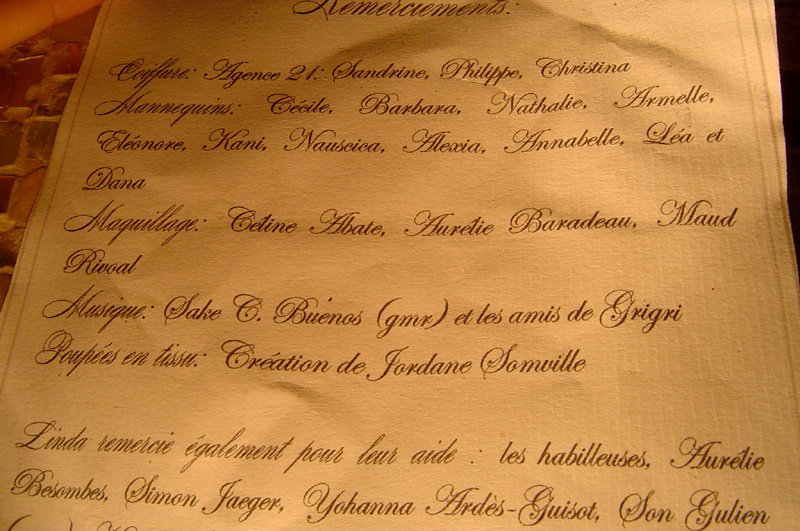 Remerciements:
Coiffure: Agence 21: Sandrine, Philippe, Christina
Mannequins: Cécile, Barbara, Nathalie, Armelle,
Eléonore, Kani, Nauscica, Alexia, Annabelle, Léa et
Dana
Maquillage: Céline Abate, Aurélie Baradeau, Maud
Rivoal
Musique: Sake C. Buénos (gmr) et les amis de Grigri
Poupées en tissu: Création de Jordane Somville
Linda remercie également pour leur aide : les habilleuses, Aurélie
Besombes, Simon Jaeger, Yohanna Ardès-Guisot, Son Gulien